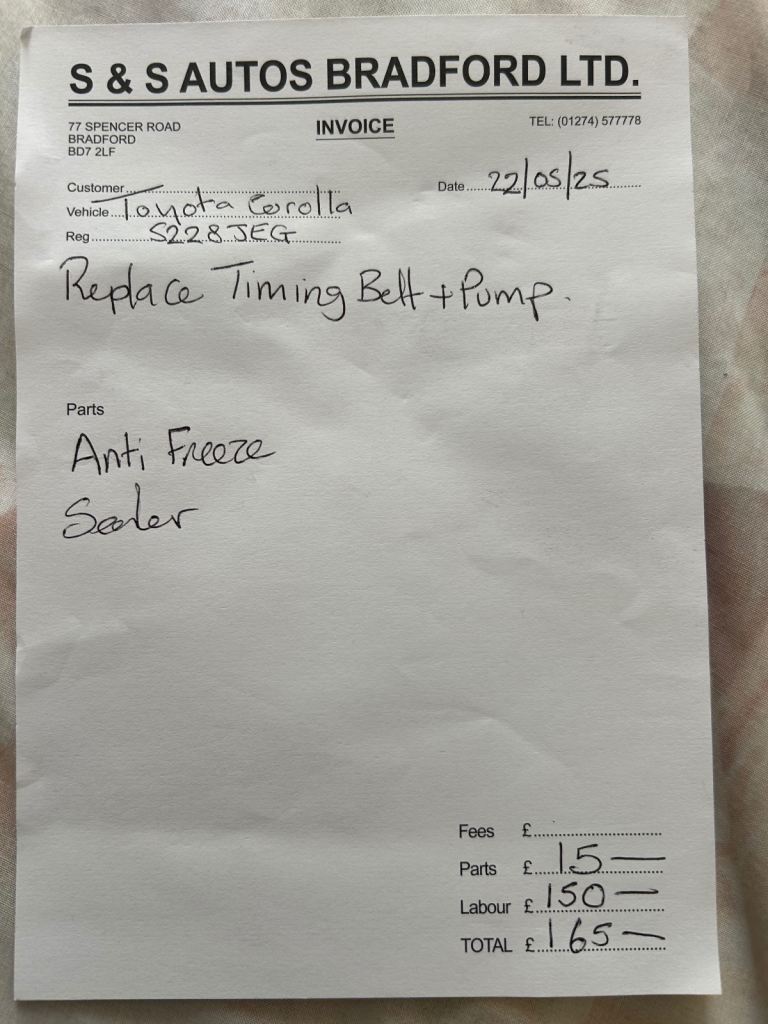 S & S AUTOS BRADFORD LTD.
77 SPENCER ROAD
BRADFORD
BD7 2LF
INVOICE
TEL: (01274) 577778
Customer
Date 22/05/25
Vehicle Toyota Corolla
Reg S228JEG
Replace Timing Belt + Pump.
Parts
Anti Freeze
Sealer
Fees £
Parts £ 15—
Labour £ 150—
TOTAL £ 165—